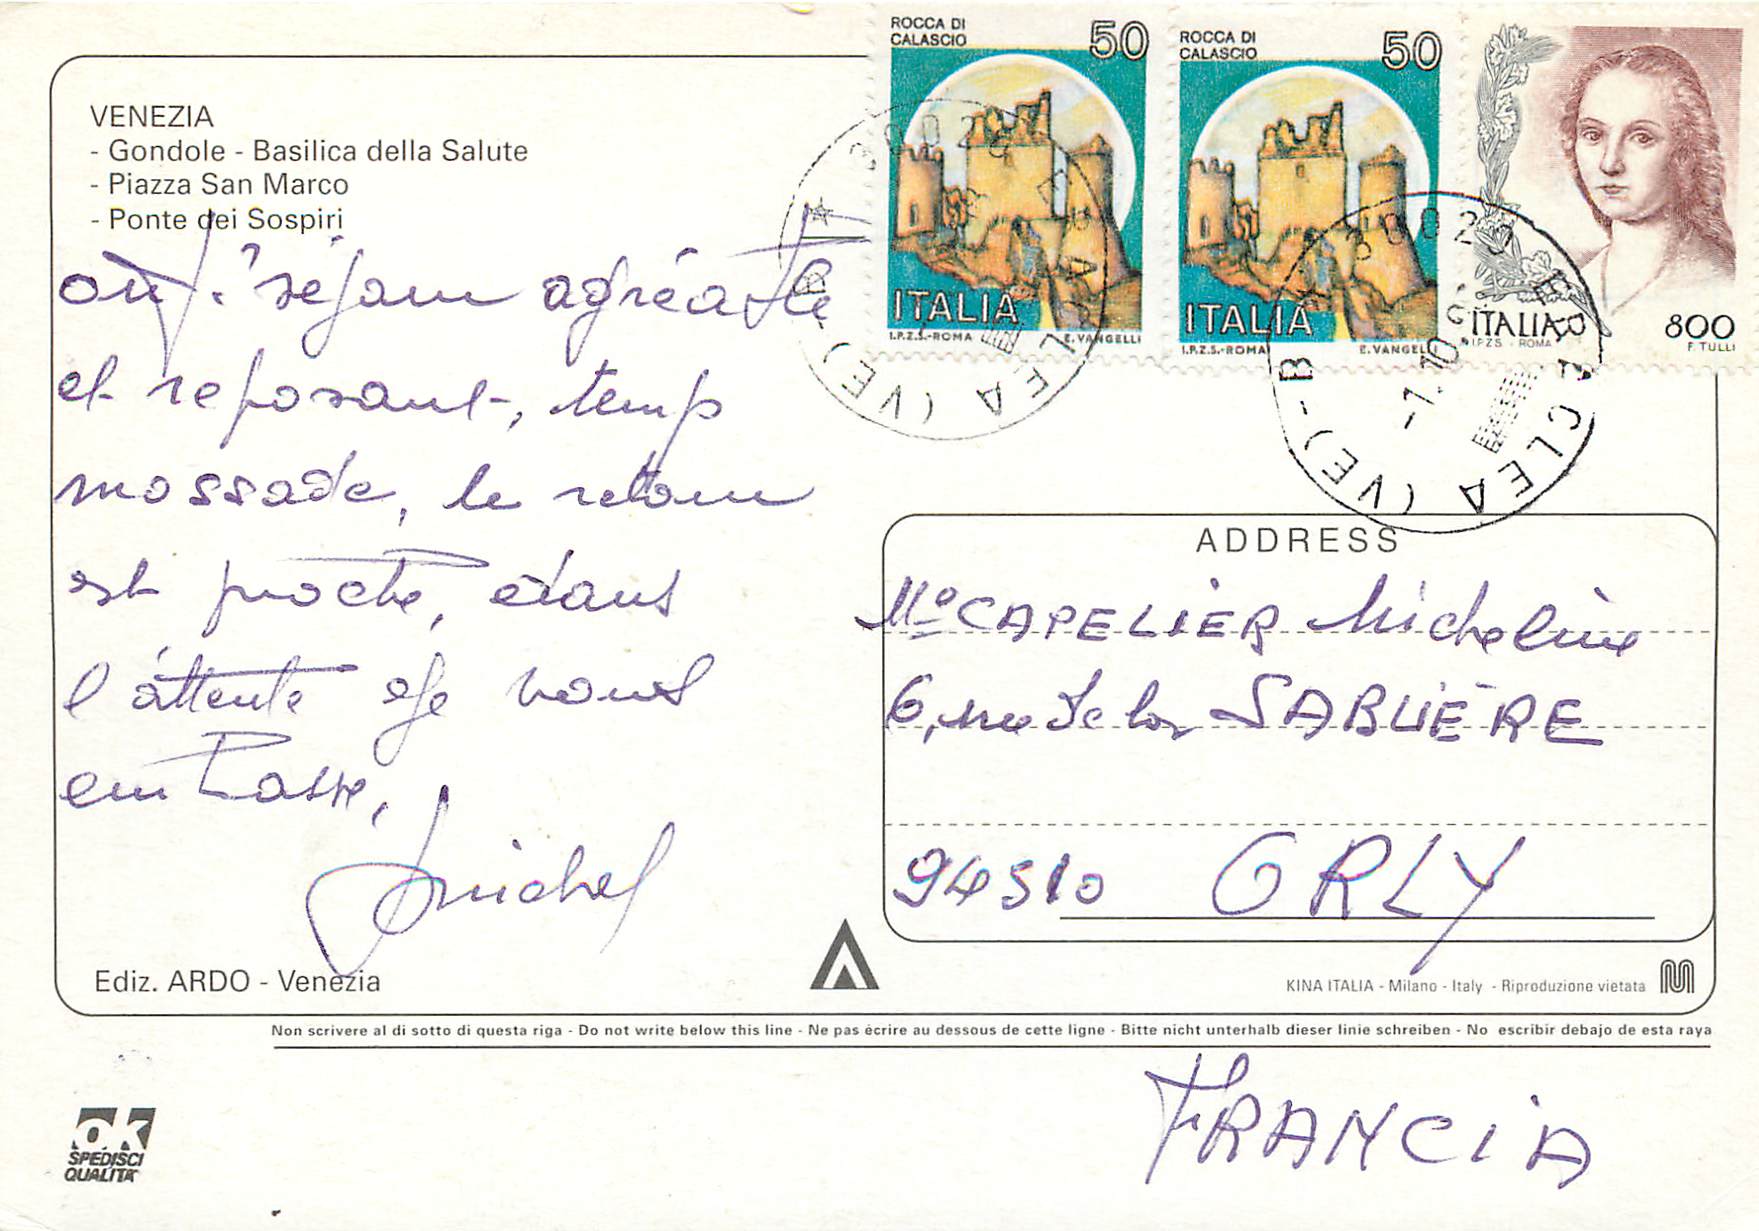 ROCCA DI
CALASCIO
50
ITALIA
I.P.Z.S.-ROMA E. VANGELLI
ROCCA DI
CALASCIO
50
ITALIA
I.P.Z.S.-ROMA E. VANGELLI
ITALIA 800
I.P.Z.S - ROMA F. TULLI
30020 ERACLEA (VE)
30020 ERACLEA (VE) - B
-7.10
VENEZIA
- Gondole - Basilica della Salute
- Piazza San Marco
- Ponte dei Sospiri
séjour agréable
et reposant, temp
mossade, le retour
est proche, dans
l'attente je vous
embrasse,
Michel
ADDRESS
Me CAPELIER Micheline
6, rue de la SABLIÈRE
94510 ORLY
Ediz. ARDO - Venezia
KINA ITALIA - Milano - Italy - Riproduzione vietata
Non scrivere al di sotto di questa riga - Do not write below this line - Ne pas écrire au dessous de cette ligne - Bitte nicht unterhalb dieser linie schreiben - No escribir debajo de esta raya
FRANCIA
OK
SPEDISCI
QUALITA'